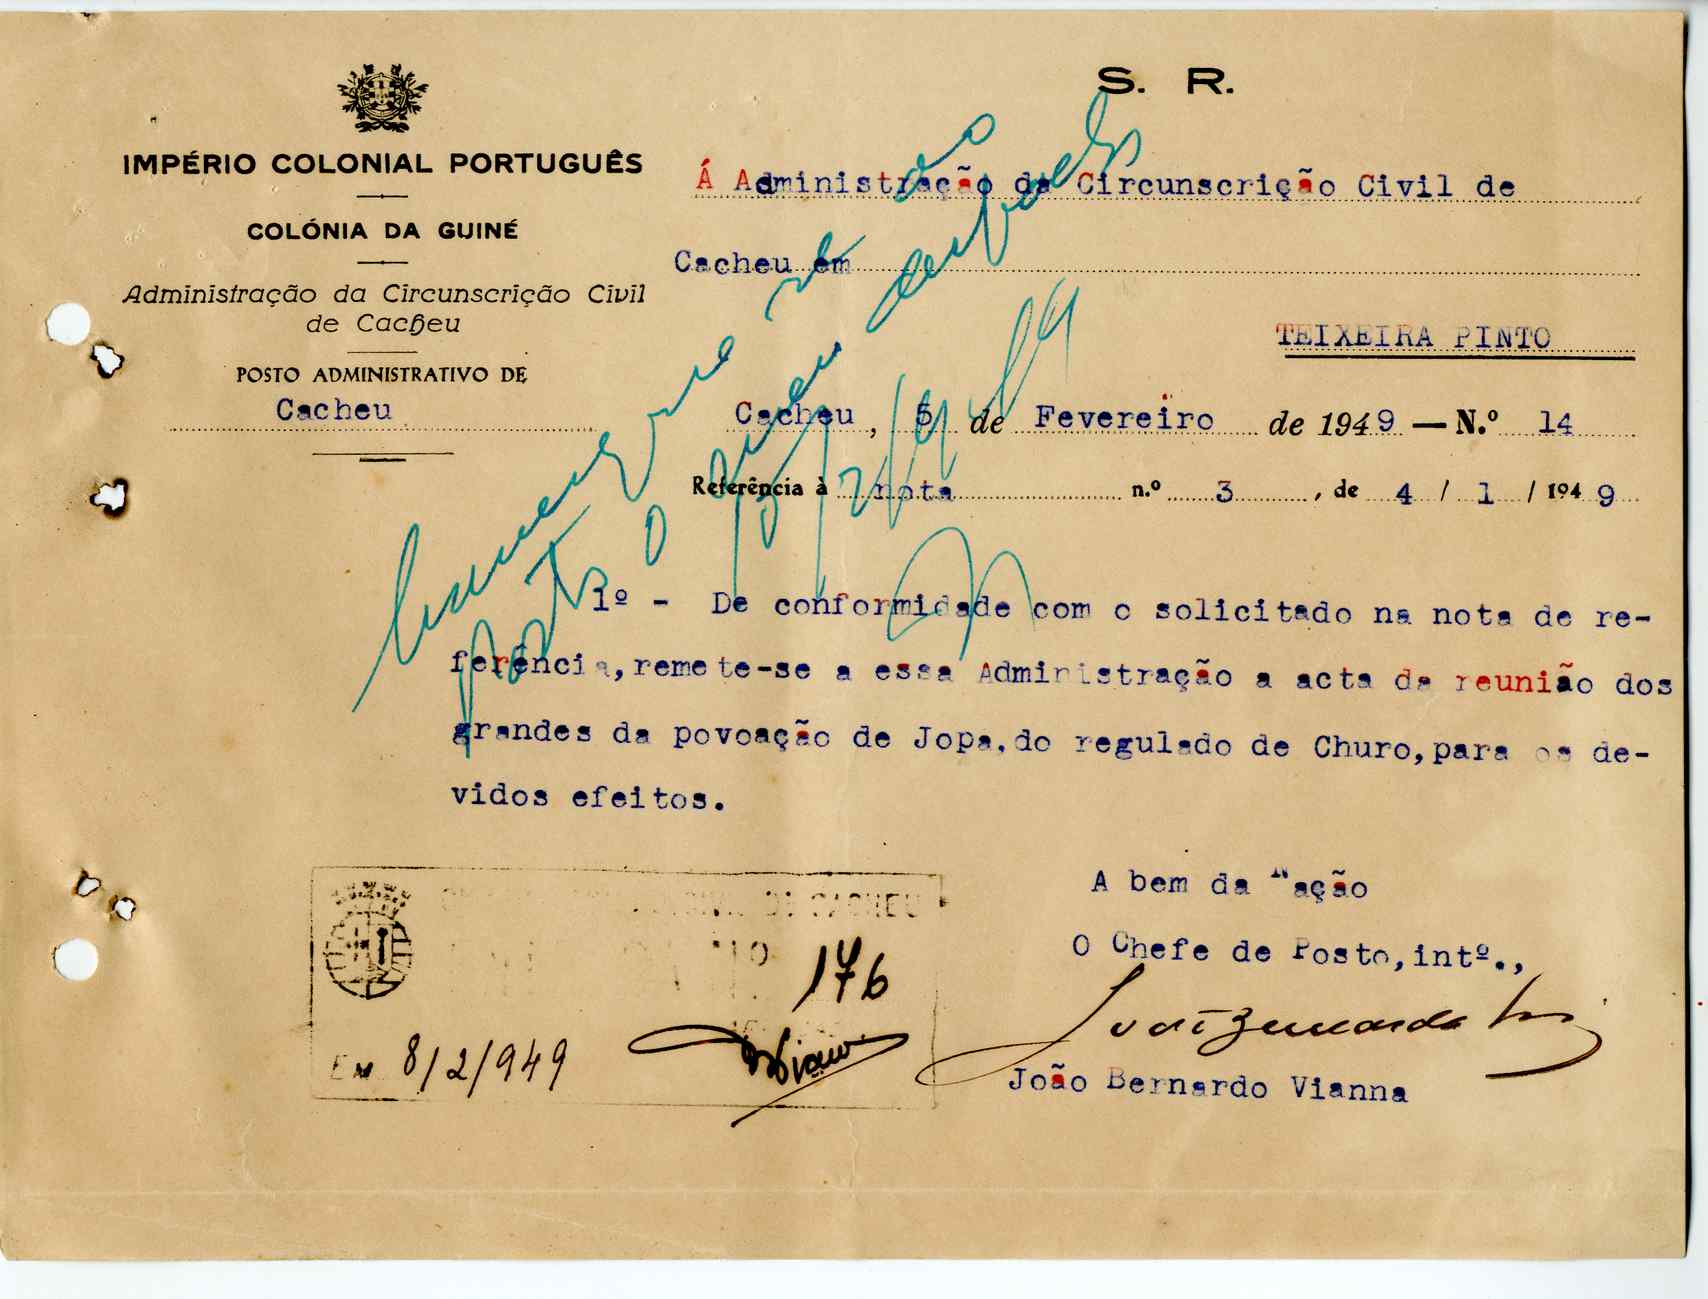 S. R.
IMPÉRIO COLONIAL PORTUGUÊS
COLÓNIA DA GUINÉ
Administração da Circunscrição Civil
de Cacheu
POSTO ADMINISTRATIVO DE
Cacheu
Á Administração da Circunscrição Civil de
Cacheu em
TEIXEIRA PINTO
Cacheu, 5 de Fevereiro de 1949 — N.º 14
Referência à nota n.º 3, de 4 / 1 / 1949
1º - De conformidade com o solicitado na nota de re-
ferência, remete-se a essa Administração a acta da reunião dos
grandes da povoação de Jopa, do regulado de Churo, para os de-
vidos efeitos.
A bem da Nação
O Chefe de Posto, intº.,
João Bernardo Vianna
DE CACHEU
176
Em 8/2/949